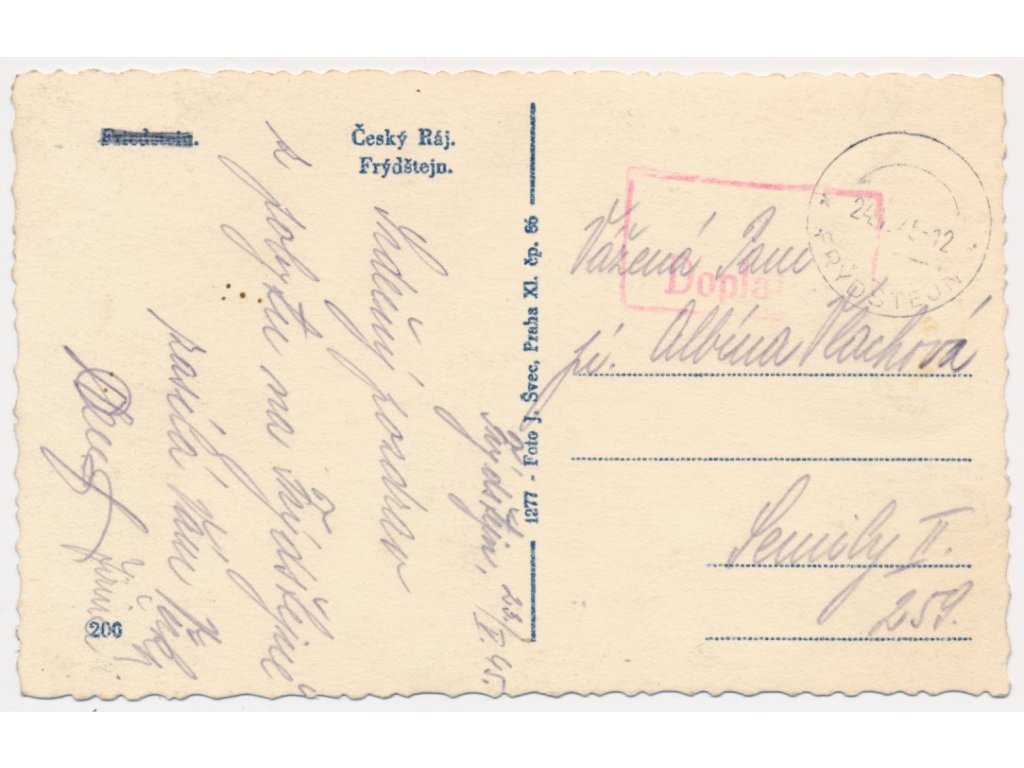 Friedstein.
Český Ráj.
Frýdštejn.
Frýdštejn, 23/X. 45.
Srdečný pozdrav
z pobytu na Frýdštejně
posílá Vám
200
1277 - Foto J. Švec, Praha XI. čp. 66
Doplatit
24. 45-12
FRÝDŠTEJN
Vážená Paní
pí. Albína Vlachová
Semily II.
259.